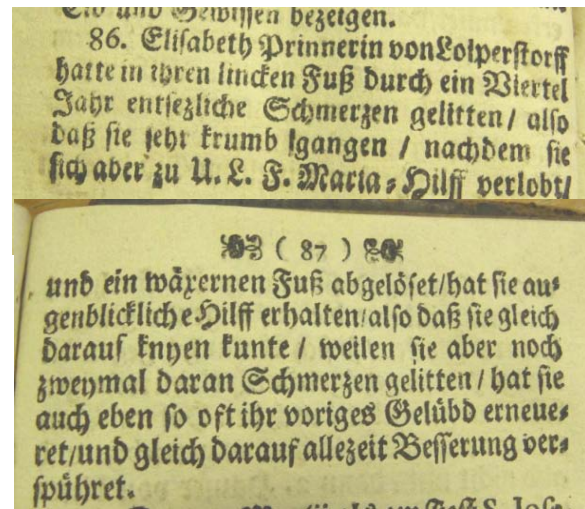 Eid und Gewissen bezeigen.
86. Elisabeth Prinnerin von Loiperstorff
hatte in ihren lincken Fuß durch ein Viertel
Jahr entsezliche Schmerzen gelitten / also
daß sie sehr krumb gangen / nachdem sie
sich aber zu U. L. F. Maria-Hilff verlobt/
( 87 )
und ein wäxernen Fuß abgelöset/hat sie au-
genblickliche Hilff erhalten/also daß sie gleich
darauf knyen kunte / weilen sie aber noch
zweymal daran Schmerzen gelitten / hat sie
auch eben so oft ihr voriges Gelübd erneue-
ret/und gleich darauf allezeit Besserung ver-
spühret.